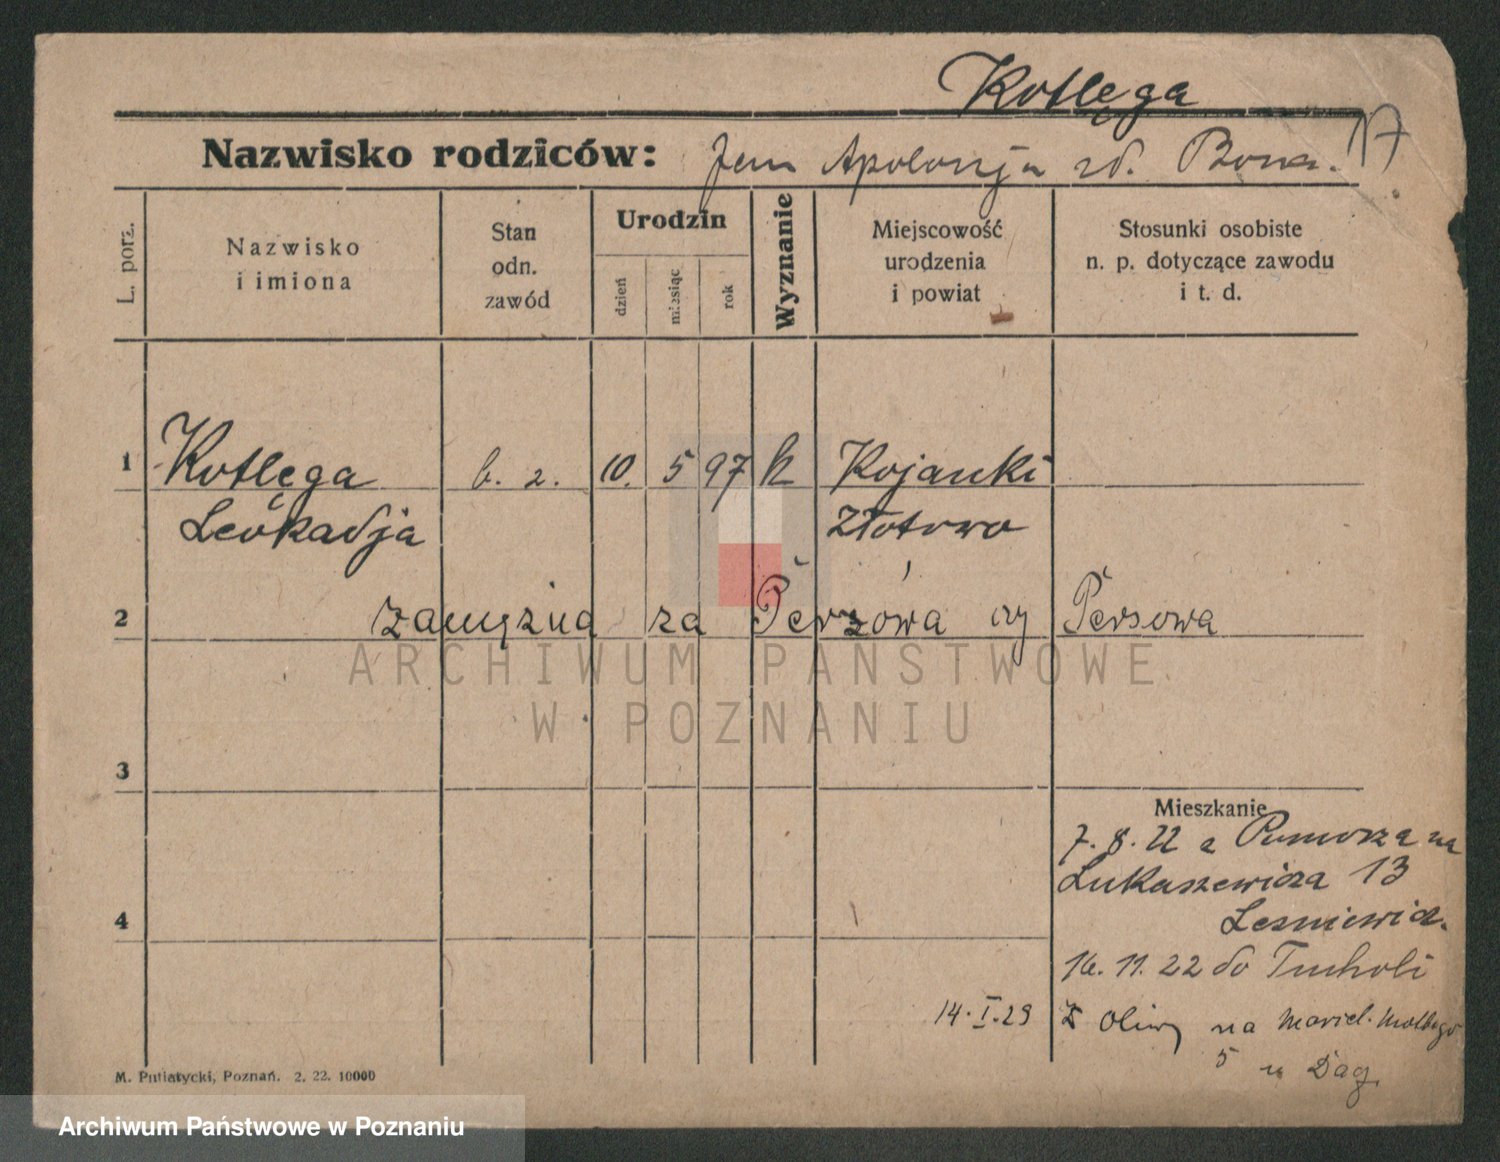 Kotlęga
17
Nazwisko rodziców: Jan Apolonja zd. Bona.
L. porz.
Nazwisko
i imiona
Stan
odn.
zawód
Urodzin
dzień
miesiąc
rok
Wyznanie
Miejscowość
urodzenia
i powiat
Stosunki osobiste
n. p. dotyczące zawodu
i t. d.
1 Kotlęga b. z. 10. 5 97 k Kujanki
Leokadja Złotowo
2 zamężna za Perzówa czy Persowa
ARCHIWUM PAŃSTWOWE
W POZNANIU
3
Mieszkanie
7. 8. 22 z Pomorza na
Łukaszewicza 13
4 Leśniewicz.
16. 11. 22 do Tucholi
14. I. 29 Z Oliwy na
5 u
M. Putiatycki, Poznań. 2. 22. 10000
Archiwum Państwowe w Poznaniu